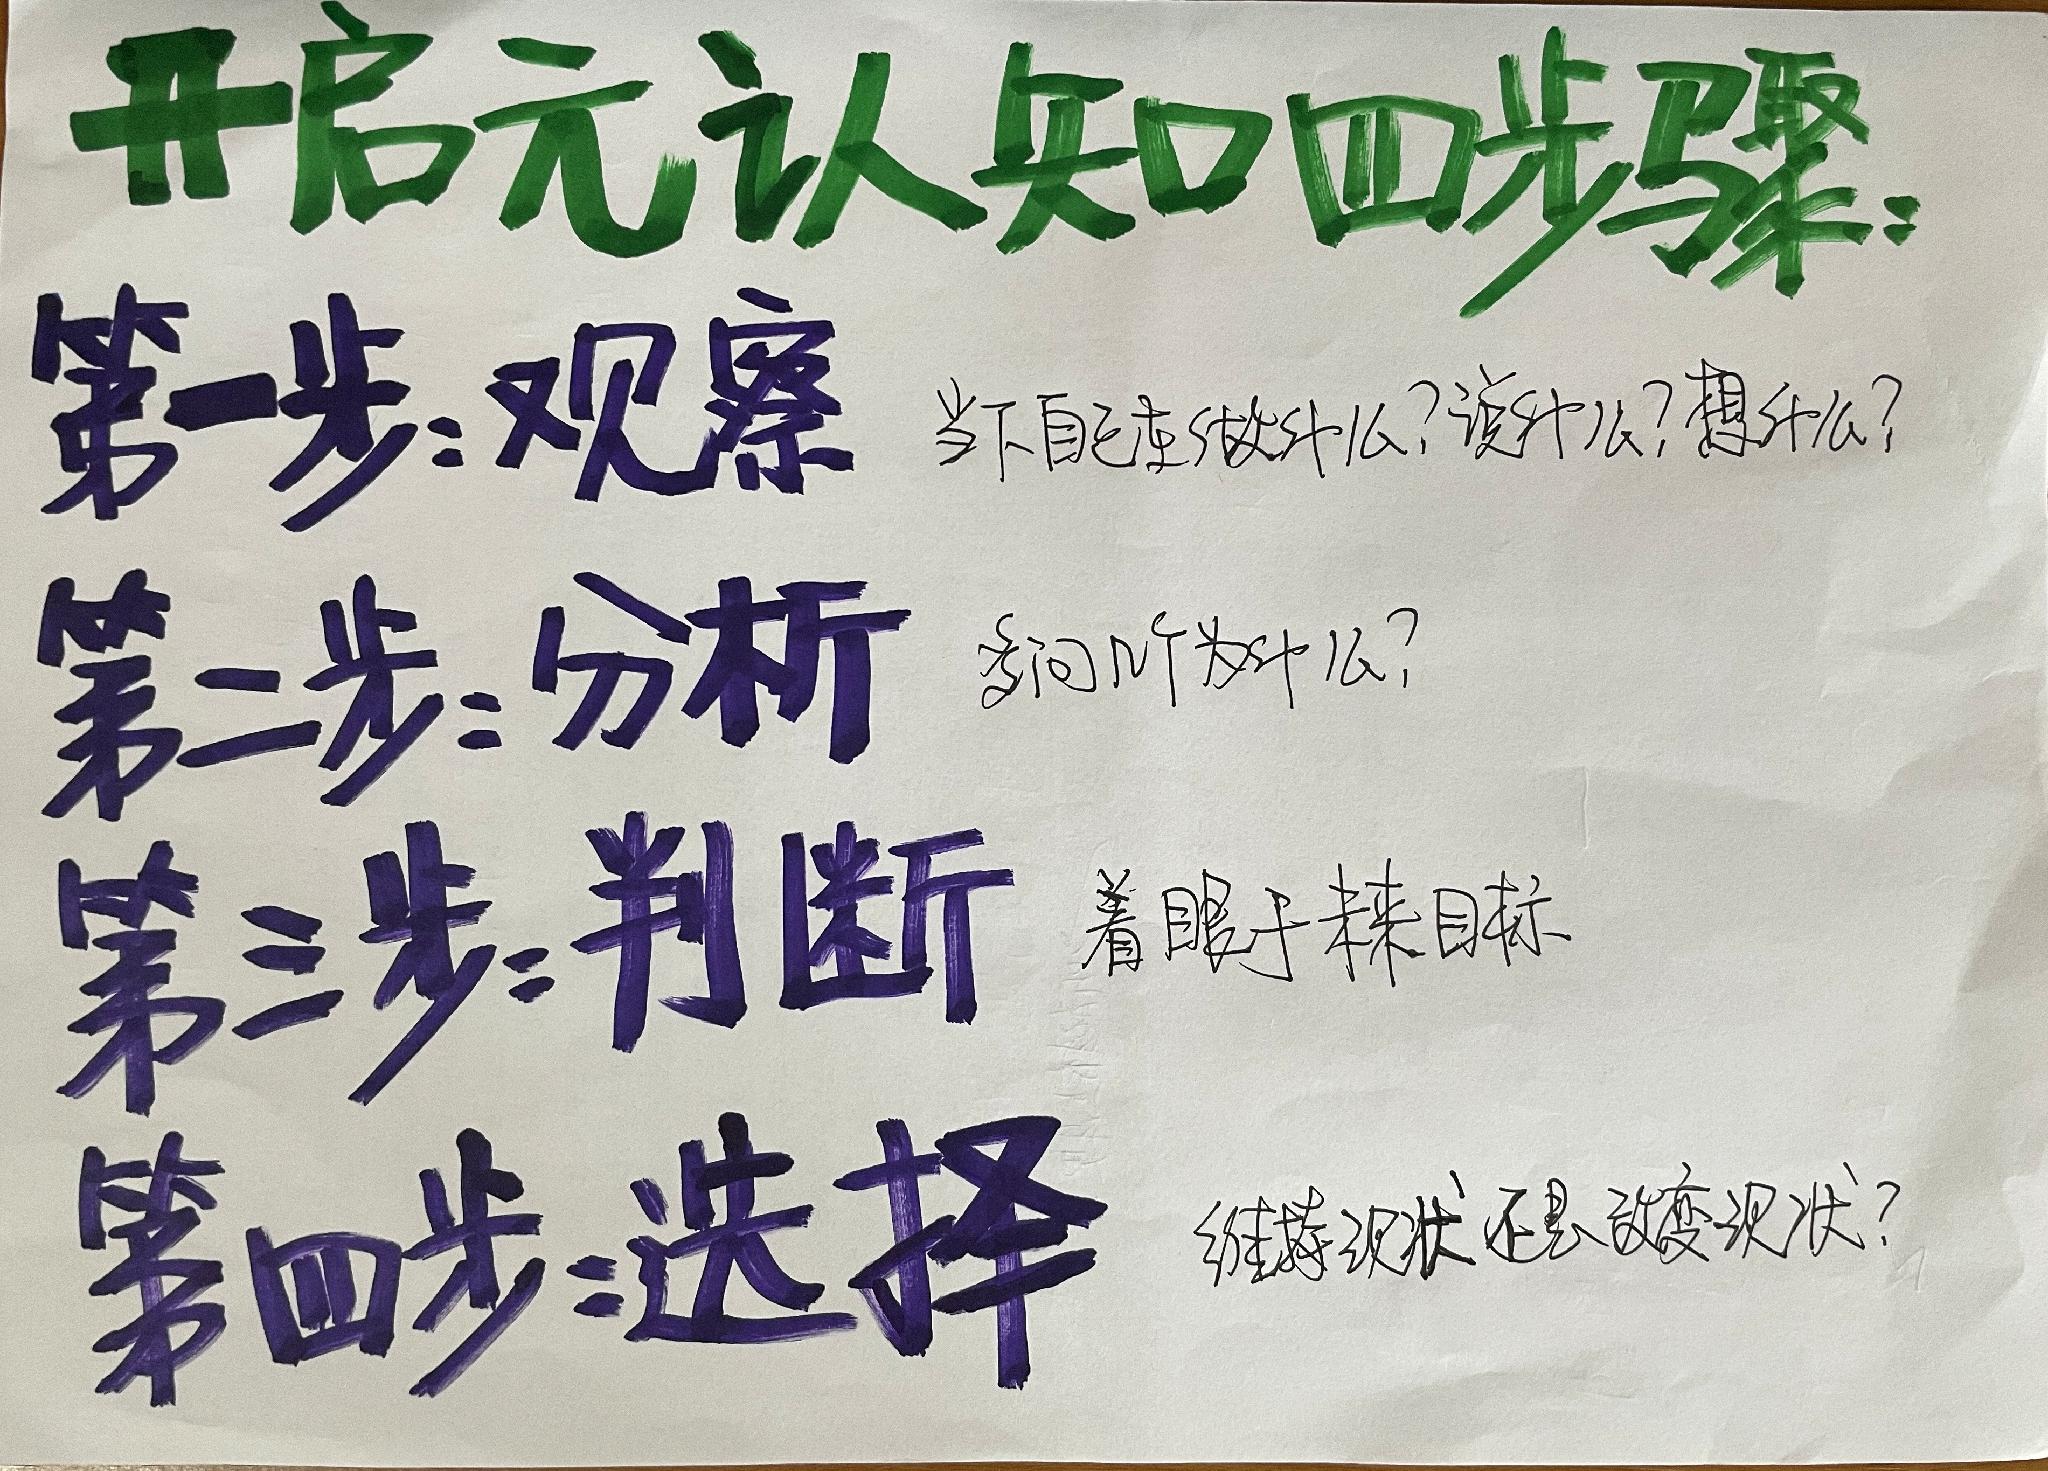 开启元认知四步骤:
第一步:观察 当下自己在做什么?说什么?想什么?
第二步:分析 多问几个为什么?
第三步:判断 着眼于未来目标
第四步:选择 维持现状还是改变现状?